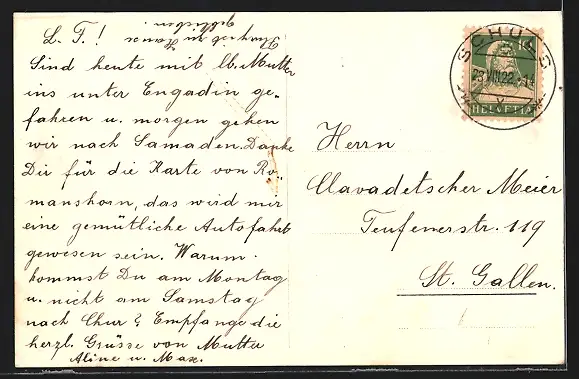 L. F.!
Sind heute mit lb. Mutter
ins unter Engadin ge-
fahren u. morgen gehen
wir nach Samaden. Danke
Dir für die Karte von Ro-
manshorn, das wird mir
eine gemütliche Autofahrt
gewesen sein. Warum
kommst Du am Montag
u. nicht am Samstag
nach Chur? Empfange die
herzl. Grüsse von Mutter
Aline u. Max.
ist zu Hause
geblieben
SCHULS
23.VIII.22
10
HELVETIA
Herrn
Clavadetscher Meier
Teufenerstr. 119
St. Gallen.